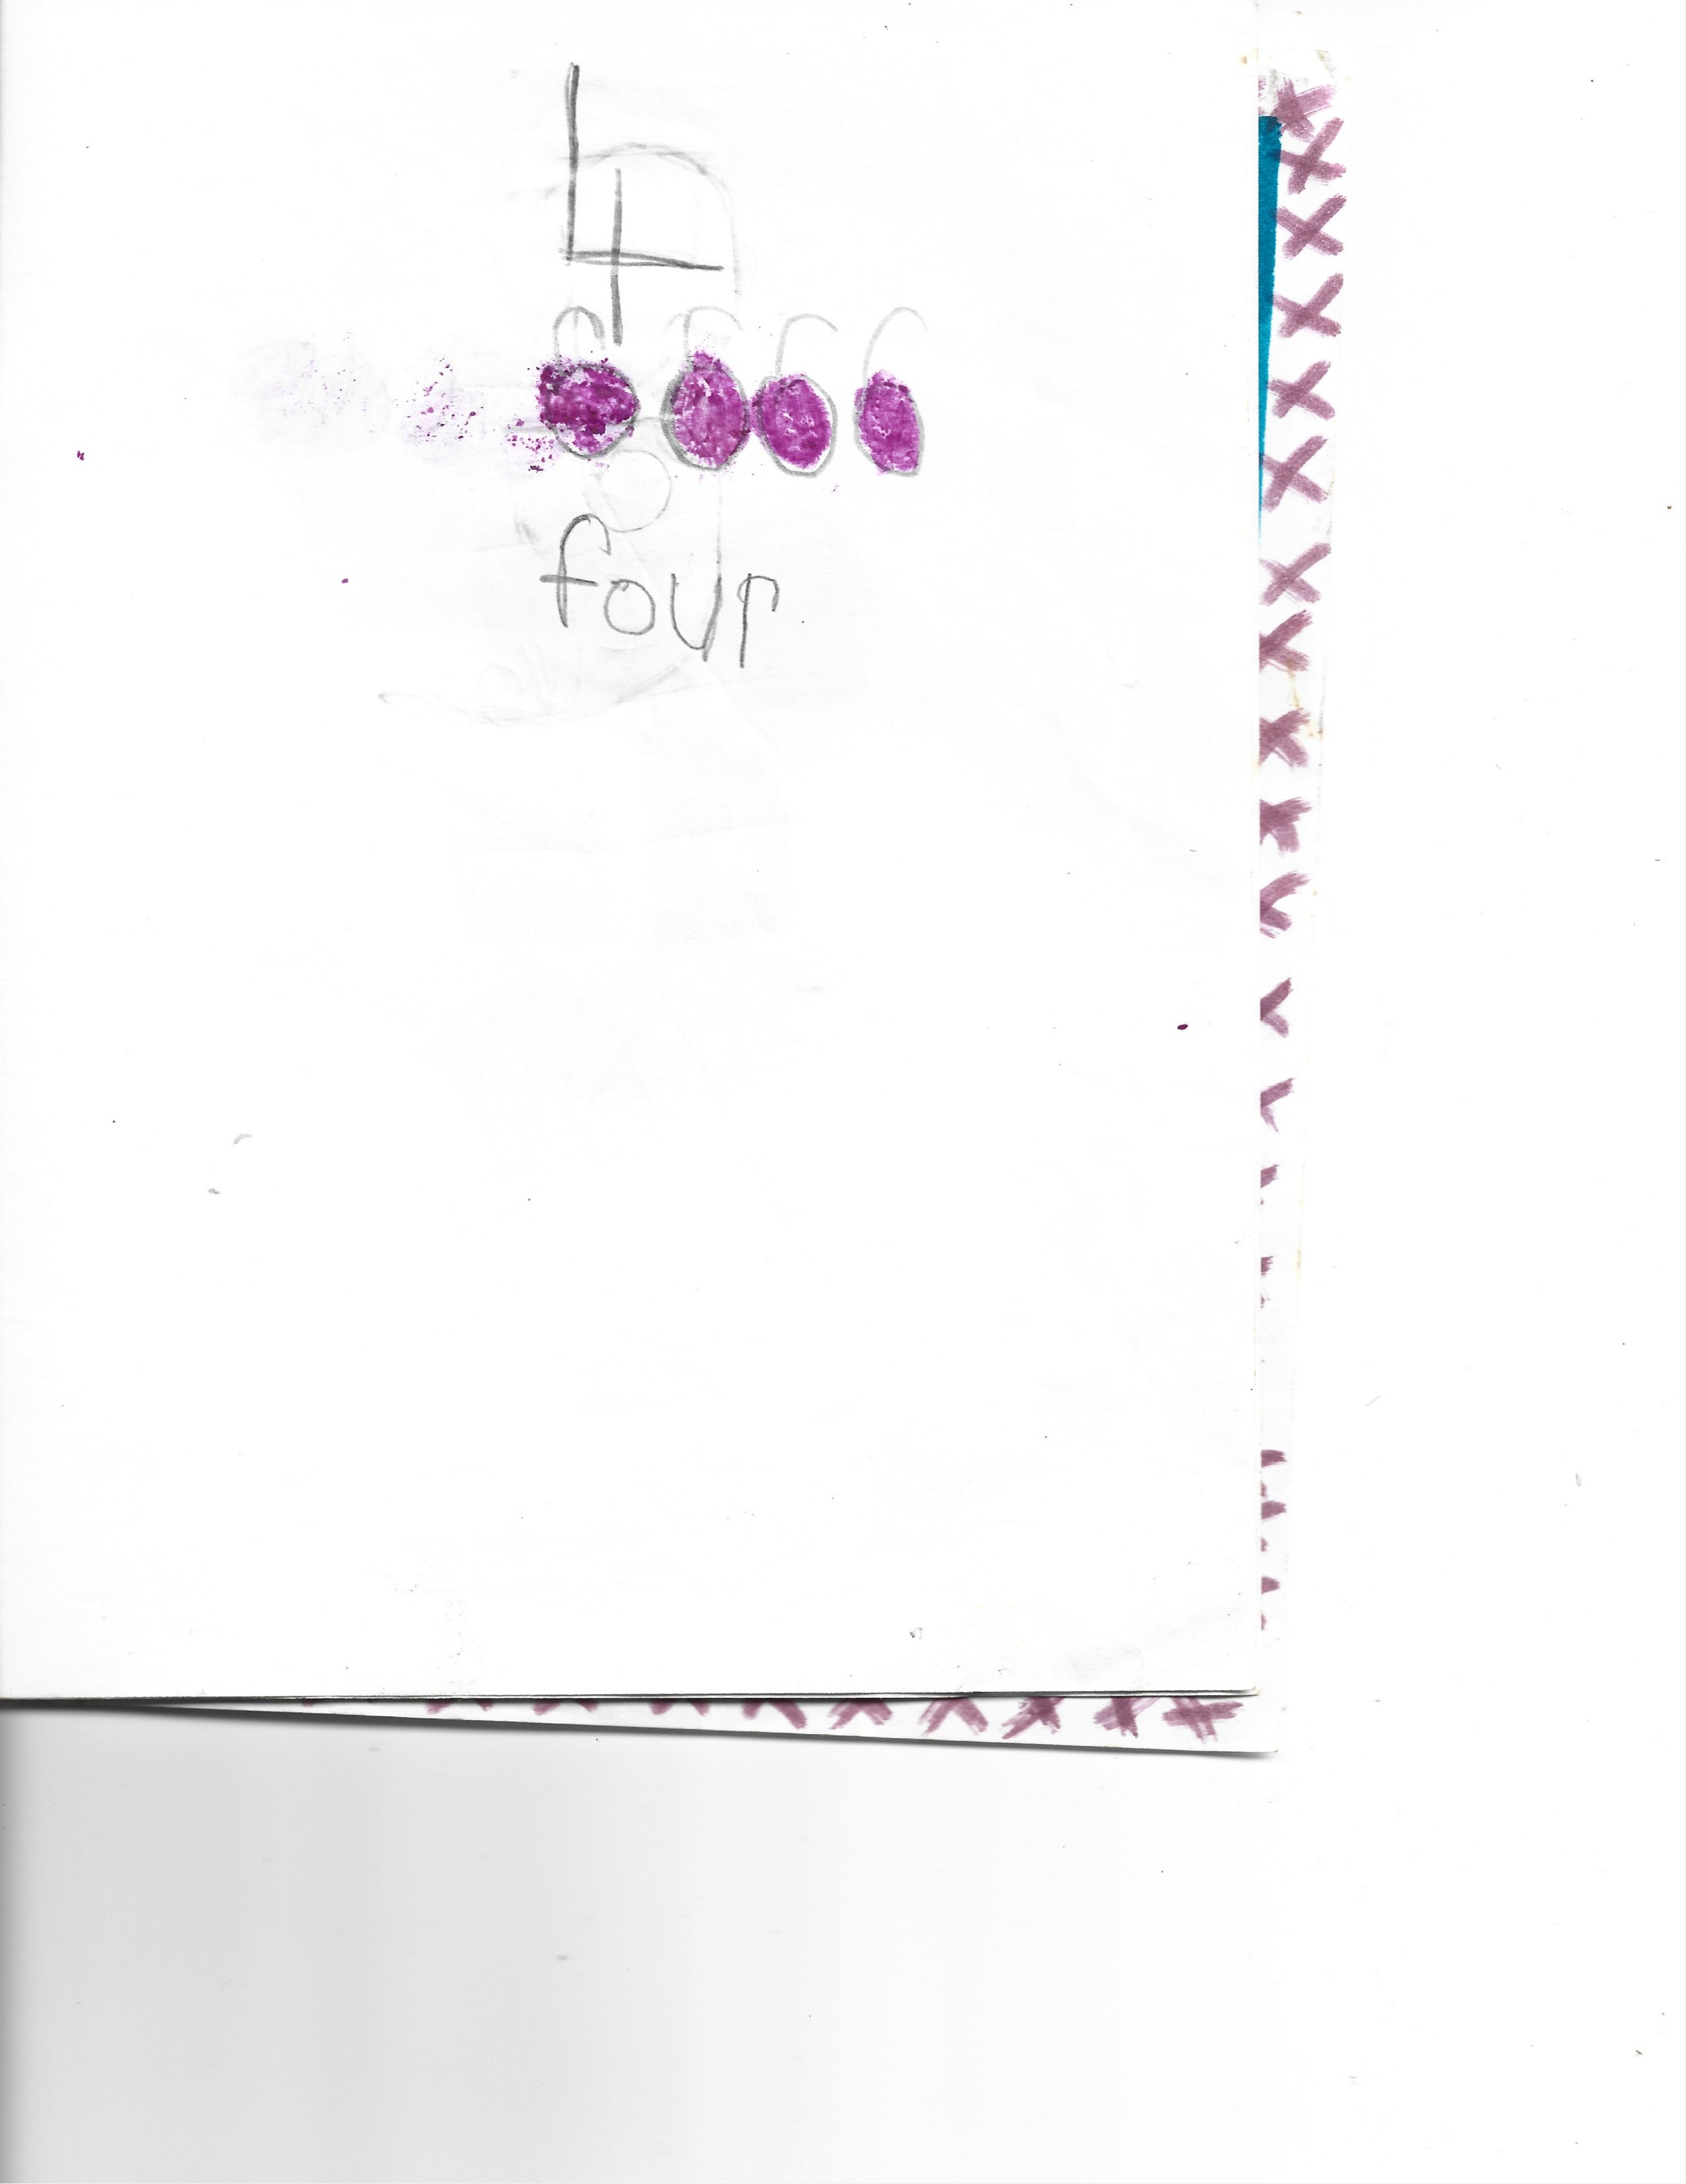 4
four